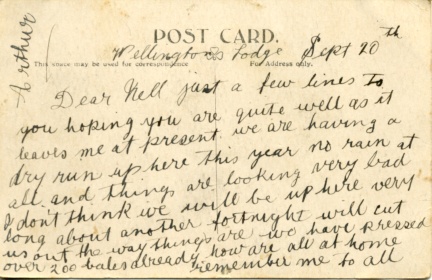 Arthur
POST CARD.
Wellingtons Lodge Sept 20th
This space may be used for correspondence For Address only.
Dear Nell just a few lines to
you hoping you are quite well as it
leaves me at present. we are having a
dry run up here this year no rain at
all and things are looking very bad
I don't think we will be up here very
long about another fortnight will cut
us out the way things are we have pressed
over 200 bales already how are all at home
remember me to all